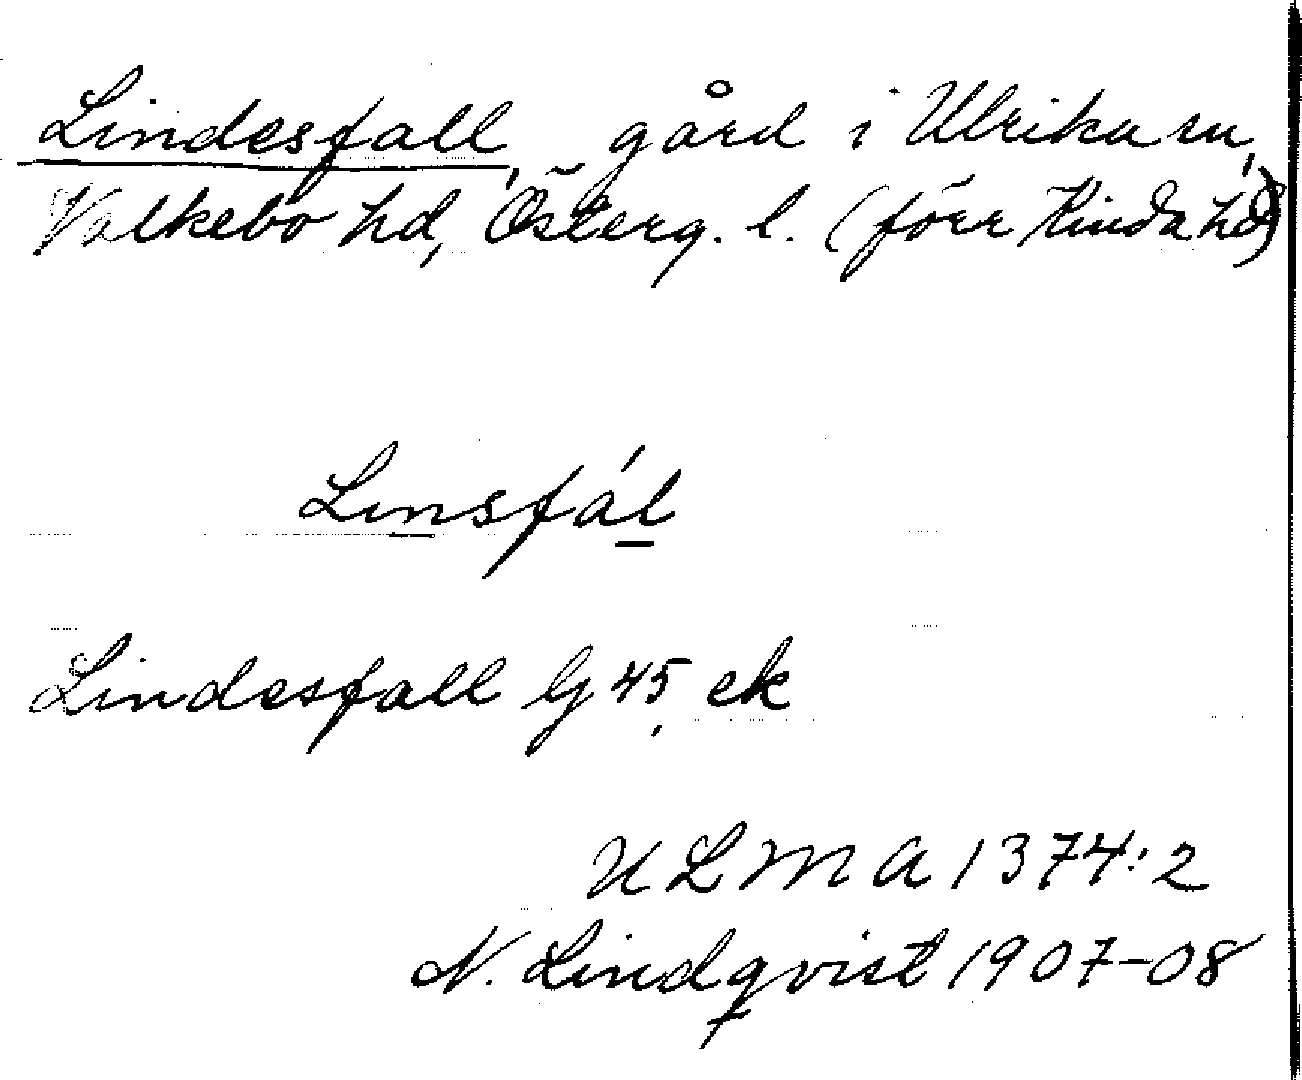 Lindesfall, gård i Ulrika sn,
Valkebo hd, Österg. l. (förr Kinda hd)
Linsfál
Lindesfall Gj 45, ek
ULMA 1374:2
N. Lindqvist 1907-08